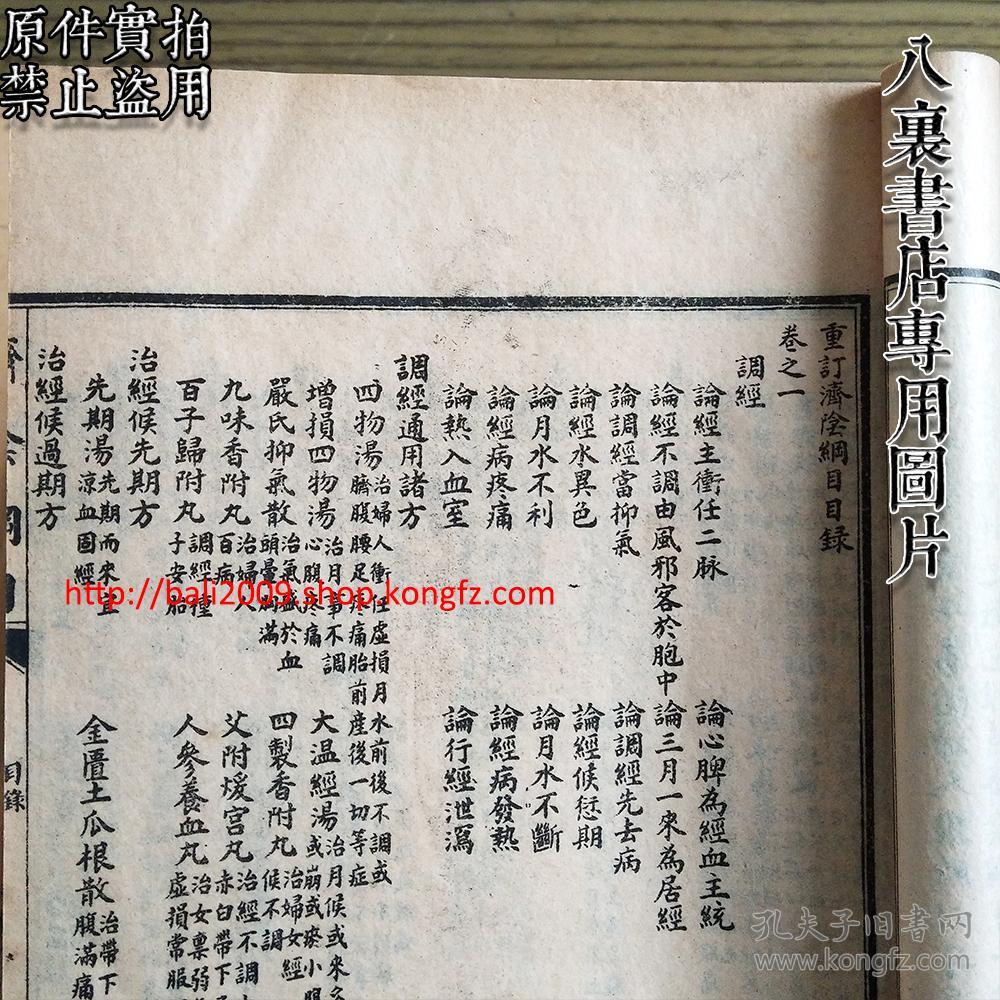 原件實拍
禁止盜用
八裏書店專用圖片
重訂濟陰綱目目錄
卷之一
調經
論經主衝任二脉
論心脾為經血主統
論經不調由風邪客於胞中
論三月一來為居經
論調經當抑氣
論調經先去病
論經水異色
論經候愆期
論月水不利
論月水不斷
論經病疼痛
論經病發熱
論熱入血室
論行經泄瀉
調經通用諸方
四物湯 治婦人衝任虛損月水前後不調或
臍腹腰足疼痛胎前產後一切等症
增損四物湯 治月事不調
心腹疼痛
大温經湯 治月候或來多
或崩或瘀小腹
嚴氏抑氣散 治氣盛於血
頭暈胸滿
四製香附丸 治婦女經
候不調
九味香附丸 治婦人
百病
艾附煖宫丸 治經不調
赤白帶下
百子歸附丸 調經種
子安胎
人參養血丸 治女禀弱
虛損常服
治經候先期方
先期湯 先期而來宜
涼血固經
金匱土瓜根散 治帶下
腹滿痛
治經候過期方
綱目
目錄
http://bali2009.shop.kongfz.com
孔夫子旧书网
www.kongfz.com